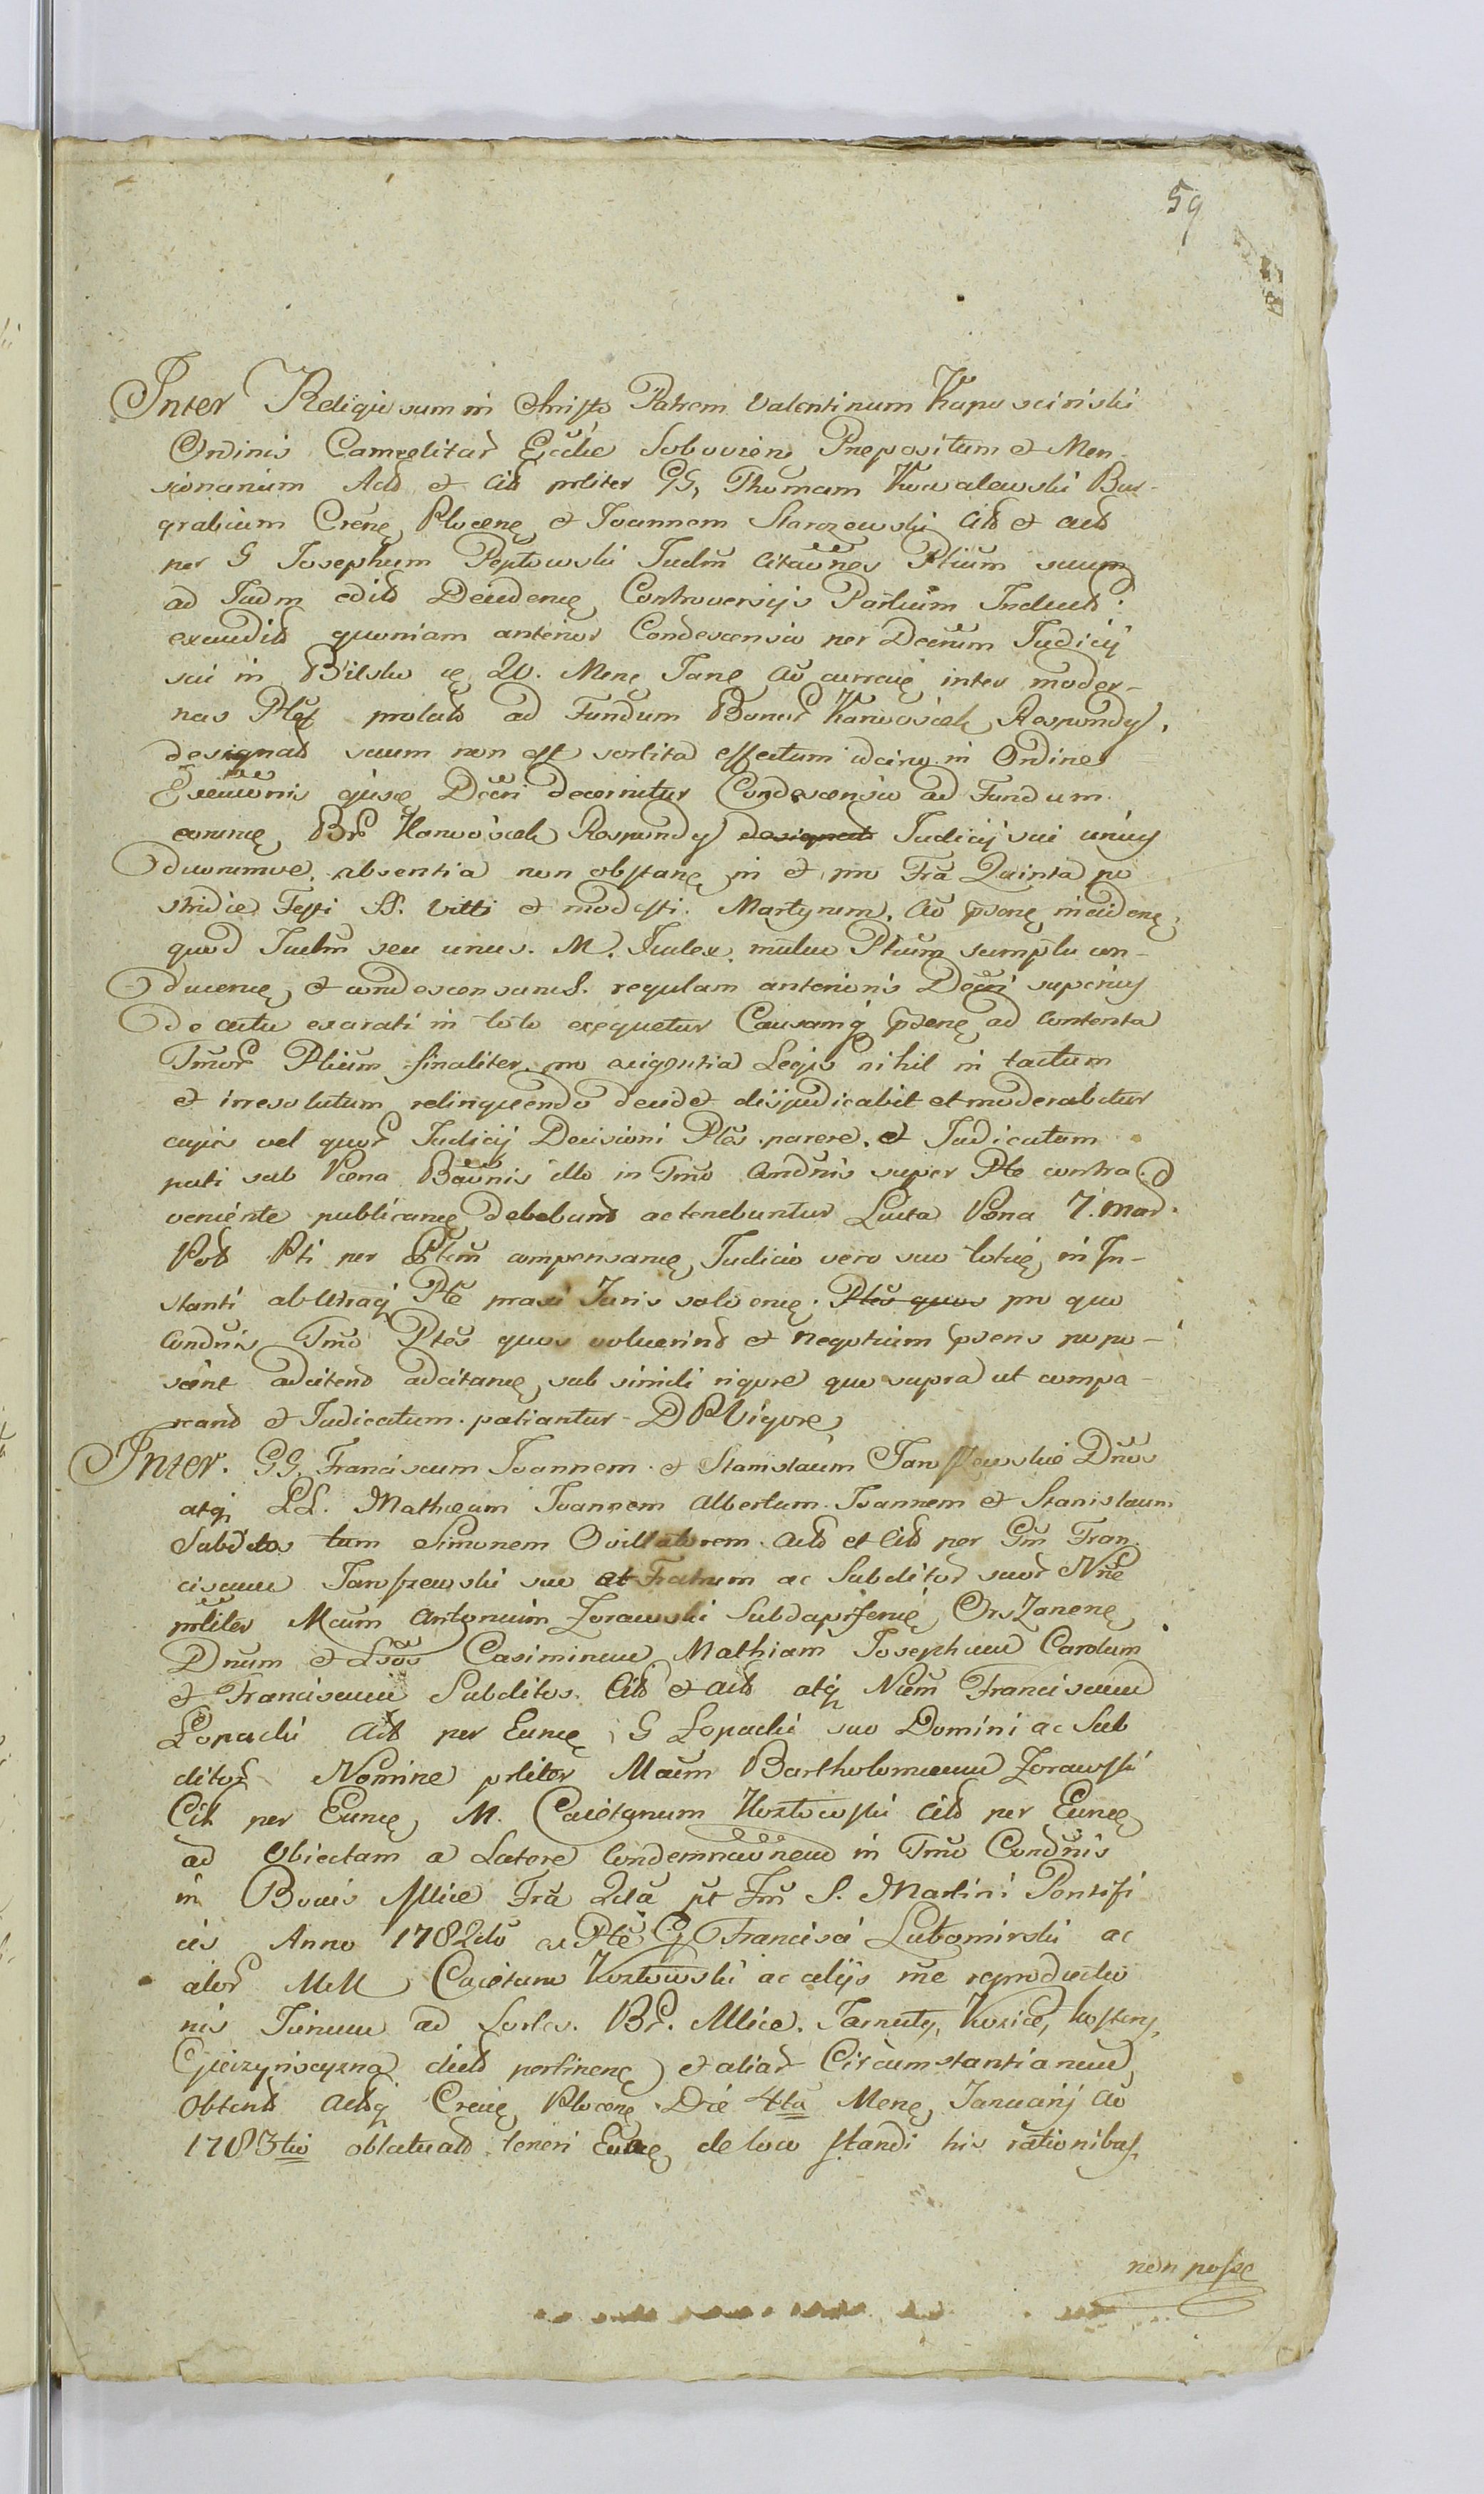 59
Inter Religiosum in Christo Patrem Valentinum Kapusciński
Ordinis Carmelitar Eccliae Praepositum et Men-
sionarium Actt et Citt prliter GG, Thomam Kowalewski Bur-
grabium Crenę Plocenę et Joannem Starozewski Citt et Actt
per G Josephum Peptowski Judm Citaõnes Ptium suum
ad Judm edit Decidenę Controversijs Partium Includ:
quoniam anterior Condescensio per Decrum Judicij
sui in Bilsko 20. Menę Janę Aõ currenę inter moder-
nas Ptes prolat ad Fundum Bonor Karwosiek Respondy,
designat suum non est sortita effectum idcirco in Ordine
Executionis ejusę Decri decernitur Condescensio ad Fundum
eorumę Br Karwosiek Respondy designat Judicij sui unius
duorumve. absentia non obstanę in et pro Fra Quinta po
stridie Festi SS. Vitti et modesti. Martyrum. Aõ psenę incidenę,
quod Judm seu unus. M. Judex. mutuo Ptium sumptu con-
ducenę et condescensurus. regulam anterioris Decri superius
de actu exarati in toto exequetur Causamq psenę ad Contenta
Tmor Ptium finaliter. pro exigentia Legis nihil in tactum
et irresolutum relinquendo decidet dijudicabit et moderabitur
cujus vel quor Judicij Decisioni Ptes. parere. et Judicatum
pati sub Poena Baõnis illo in Tmo Condnis super Pte contra
veniente publicanę debebunt ac tenebuntur Luita Pona 7. Mar
Pol Pti per Ptem compensanę Judicio vero suo totię in In-
stanti ab Utraq Pte praxi Juris solvenę. Ptes quos pro quo
Condnis Tmo Ptes quos voluerint et negotium psens popo-
scint adcitend adcitanę sub simili rigore quo supra ut compa-
reant et Judicatum. patiantur DPVigore
Inter. GG Franciscum Joannem. et Stanislaum Jaroszewskie Dnos
atq LL. Mathaeum Joannem Albertum. Joannem et Stanislaum
Subditos tum Simonem Ovillatorem. Actt et Citt per Gm Fran
ciscum Jaroszewski suo et Fratrum ac Subditor suor Nne
prliter Mcum Antonium Zorawski Subdapiferię Orszanenę
Dnum et Lsos Casimirum Mathiam Josephum Carolum
et Franciscum Subditos. Citt et Actt atq Num Franciscum
Łopacki Citt per Eumę G Łopacki suo Domini ac Sub
ditor Nomine prliter Mcum Bartholomaeum Zorawski
Citt per Eumę M. Caietanum Kozłowski Citt per Eumę
ad Obiectam a Latore Condemnaõnem in Tmo Condnis
in Bonis Mlice Fra 2da pt Fm S. Martini Pontifi
cis Anno 1782do ex Pte G Francisci Lubomirski ac
alor MM Caietano Kozłowski ac alijs me reproductio
nis Jurium ad Sortes. Br. Mlice. Tarnuty, Kozice, Kostery,
dict pertinenę et aliar Circumstantiarum
Obtent Actq Crenę Plocenę Die 4ta Menę Januarij Aõ
1783tio oblatuat teneri Eumę de loco standi his rationibus,
non posse